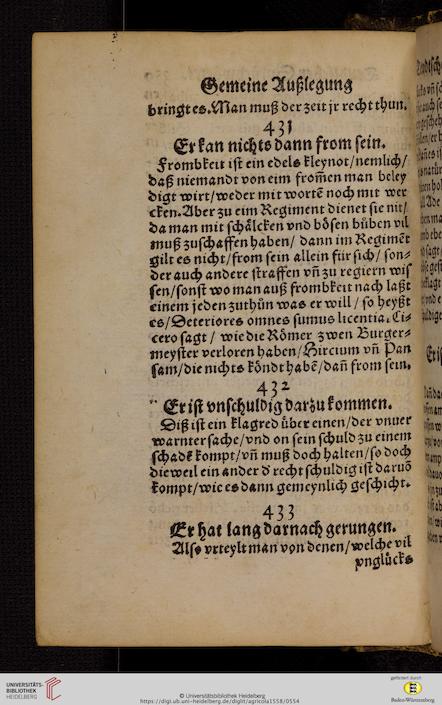 Gemeine Außlegung
bringt es. Man muß der zeit jr recht thun.
431
Er kan nichts dann from sein.
Frombkeit ist ein edels kleynot / nemlich /
daß niemandt von eim frommen man beley
digt wirt / weder mit wortē noch mit wer
cken. Aber zu eim Regiment dienet sie nit /
da man mit schälcken vnd bösen büben vil
muß zuschaffen haben / dann im Regimēt
gilt es nicht / from sein allein für sich / son⸗
der auch andere straffen vñ zu regiern wis
sen / sonst wo man auß frombkeit nach laßt
einem jeden zuthůn was er will / so heyßt
es / Deteriores omnes sumus licentia. Ci⸗
cero sagt / wie die Römer zwen Burger⸗
meyster verloren haben / Hircium vñ Pan
sam / die nichts köndt habē / dañ from sein.
432
Er ist vnschuldig darzu kommen.
Diß ist ein klagred über einen / der vnuer
warnter sache / vnd on sein schuld zu einem
schadē kompt / vñ muß doch halten / so doch
dieweil ein ander d recht schuldig ist daruõ
kompt / wie es dann gemeynlich geschicht.
433
Er hat lang darnach gerungen.
Also vrteylt man von denen / welche vil
vnglücks
UNIVERSITÄTS-
BIBLIOTHEK
HEIDELBERG
© Universitätsbibliothek Heidelberg
https://digi.ub.uni-heidelberg.de/diglit/agricola1558/0554
gefördert durch
Baden-Württemberg